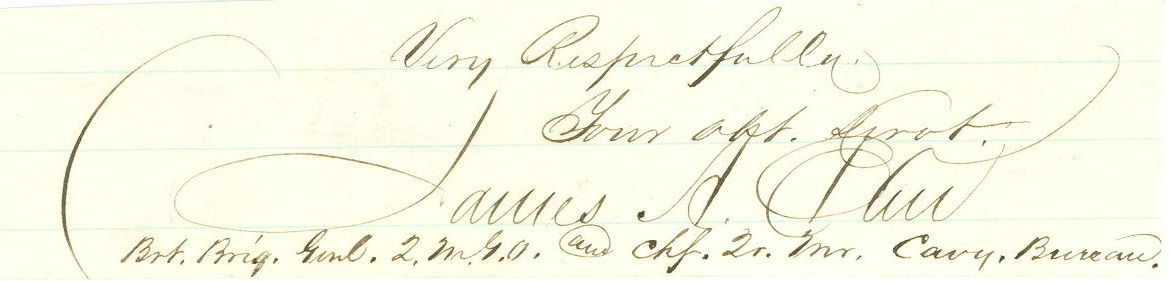 Very Respectfully.
Your obt. Servt.
James A. Ekin
Bvt. Brig. Genl. Q.M.G.O. and Chf. Qr. Mr. Cavy. Bureau.